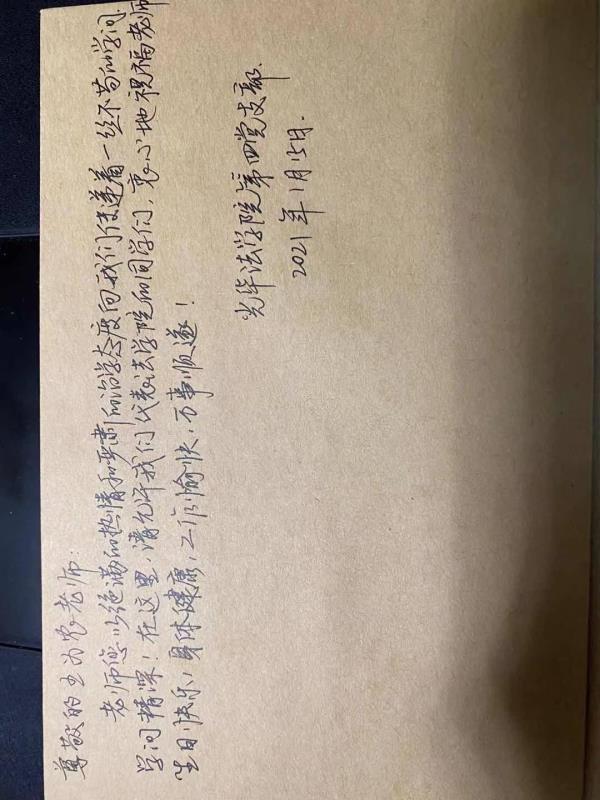 尊敬的王为农老师:
老师您以饱满的热情和严肃的治学态度向我们传递着一丝不苟的学问.
学问精深!在这里,请允许我们代表法学院的同学们,衷心地祝福老师
生日快乐,身体健康,工作愉快,万事顺遂!
光华法学院第四党支部.
2021年1月15日.